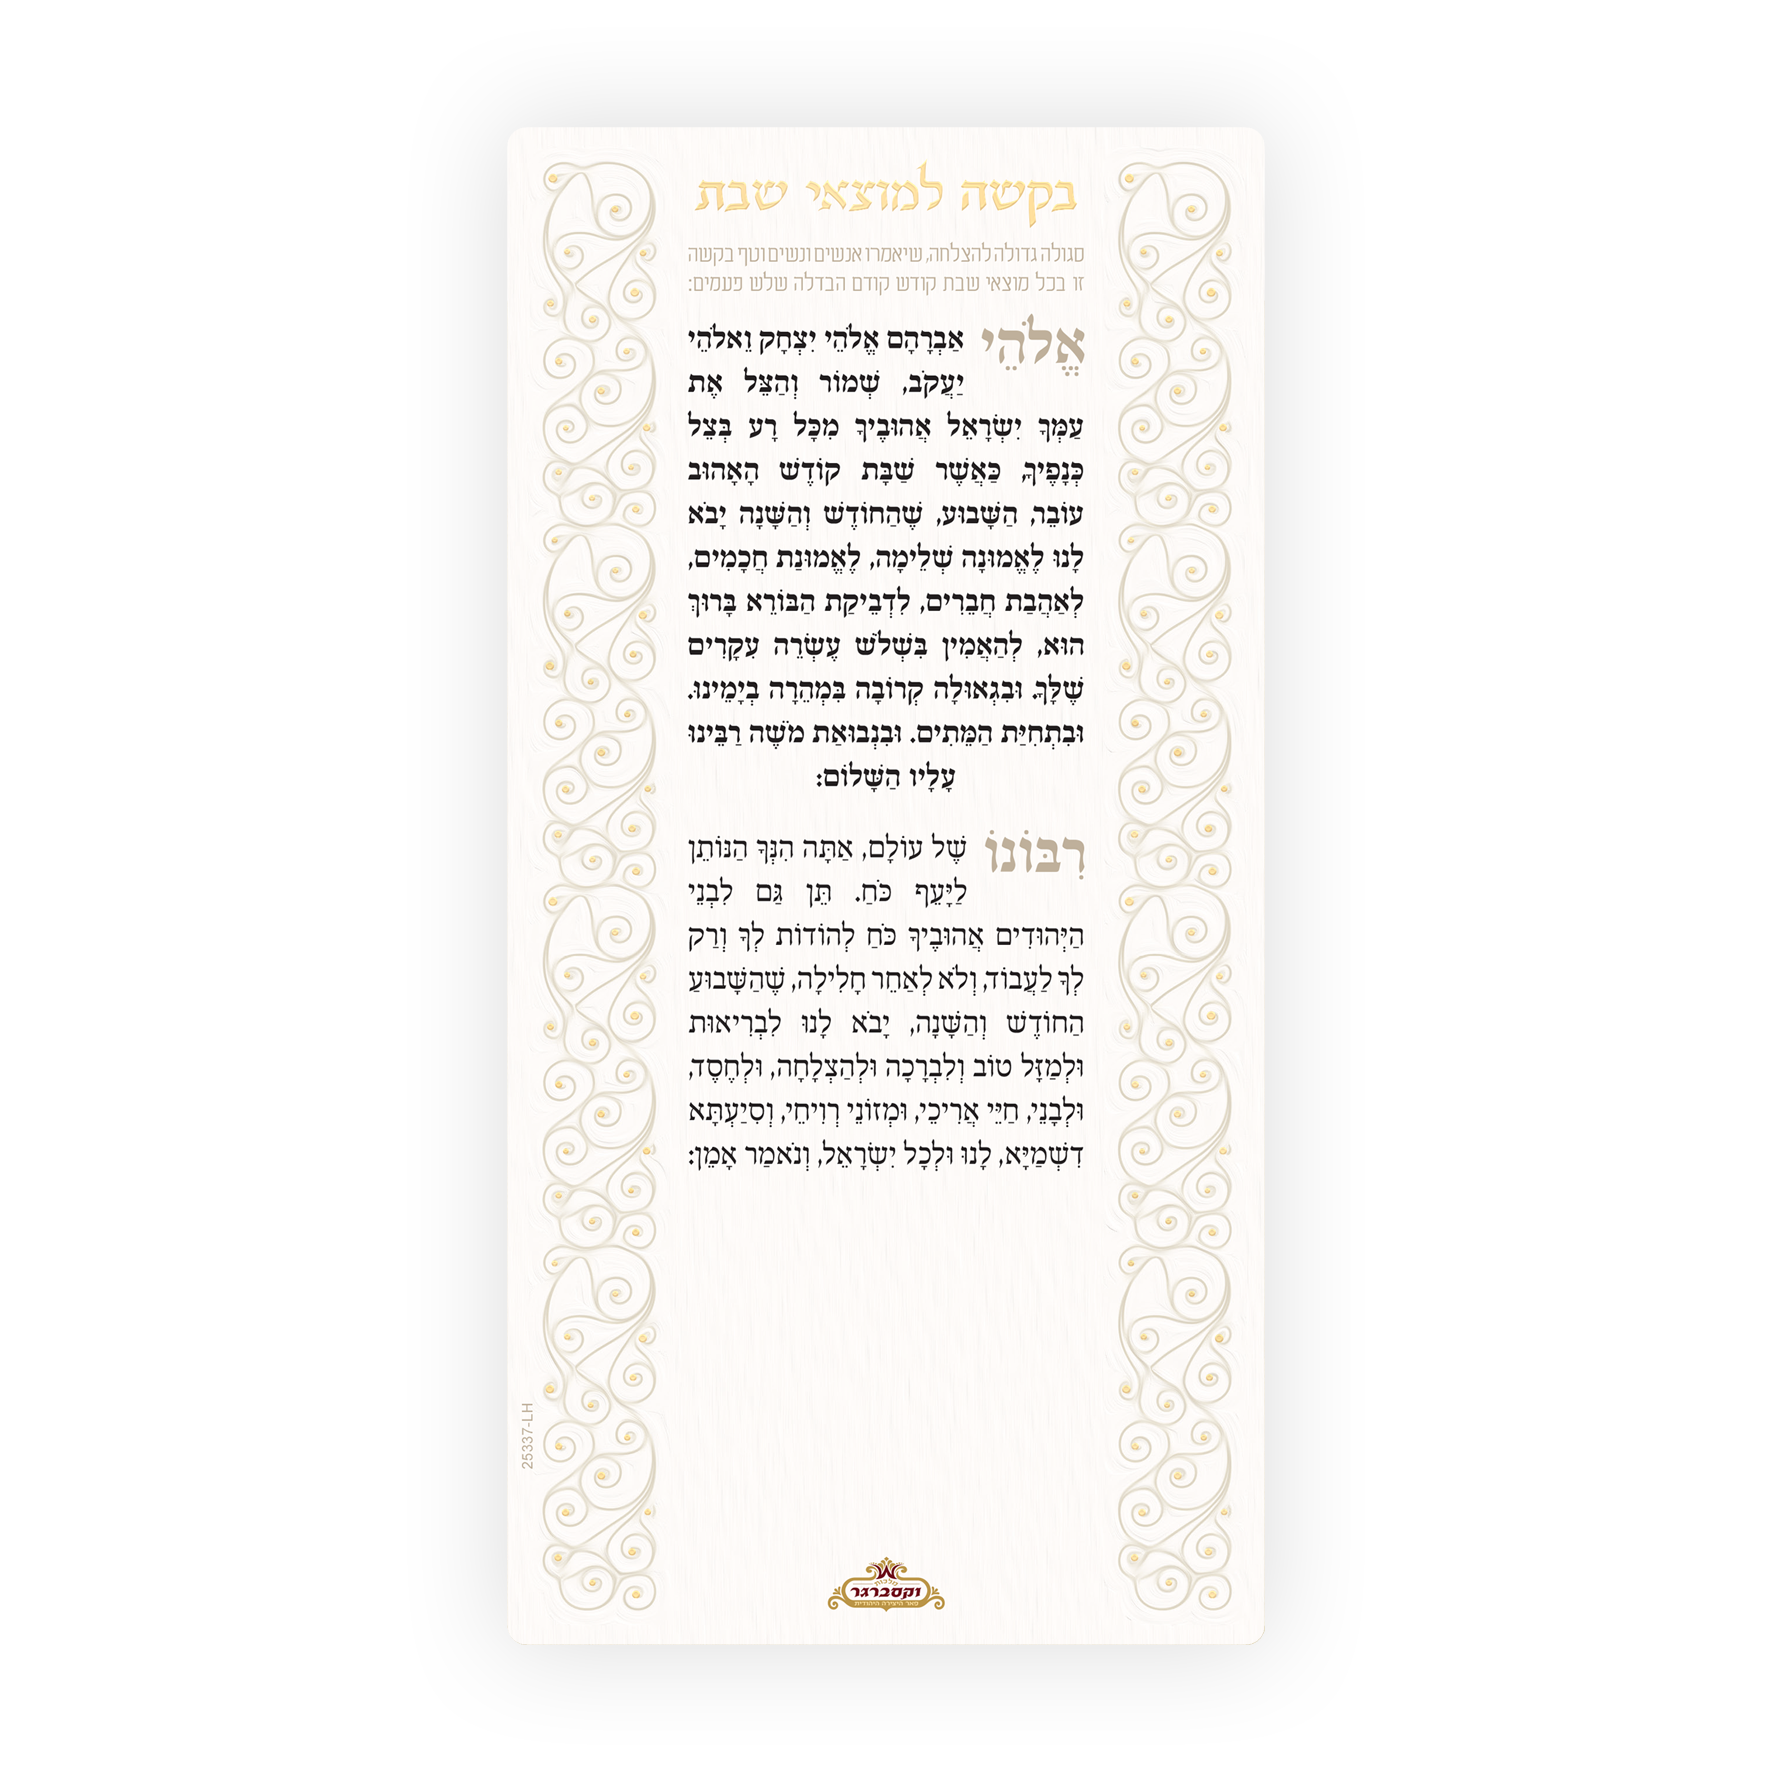 בקשה למוצאי שבת
סגולה גדולה להצלחה, שיאמרו אנשים ונשים וטף בקשה
זו בכל מוצאי שבת קודש קודם הבדלה שלש פעמים:
אֱלֹהֵי אַבְרָהָם אֱלֹהֵי יִצְחָק וֵאלֹהֵי
יַעֲקֹב, שְׁמוֹר וְהַצֵּל אֶת
עַמְּךָ יִשְׂרָאֵל אֲהוּבֶיךָ מִכָּל רָע בְּצֵל
כְּנָפֶיךָ, כַּאֲשֶׁר שַׁבָּת קוֹדֶשׁ הָאָהוּב
עוֹבֵר, הַשָּׁבוּעַ, שֶׁהַחוֹדֶשׁ וְהַשָּׁנָה יָבֹא
לָנוּ לֶאֱמוּנָה שְׁלֵימָה, לֶאֱמוּנַת חֲכָמִים,
לְאַהֲבַת חֲבֵרִים, לִדְבֵיקַת הַבּוֹרֵא בָּרוּךְ
הוּא, לְהַאֲמִין בִּשְׁלֹשׁ עֶשְׂרֵה עִקָּרִים
שֶׁלָּךָ. וּבִגְאוּלָה קְרוֹבָה בִּמְהֵרָה בְיָמֵינוּ.
וּבִתְחִיַּת הַמֵּתִים. וּבִנְבוּאַת מֹשֶׁה רַבֵּינוּ
עָלָיו הַשָּׁלוֹם:
רִבּוֹנוֹ שֶׁל עוֹלָם, אַתָּה הִנְּךָ הַנּוֹתֵן
לַיָּעֵף כֹּחַ. תֵּן גַּם לִבְנֵי
הַיְּהוּדִים אֲהוּבֶיךָ כֹּחַ לְהוֹדוֹת לְךָ וְרַק
לְךָ לַעֲבוֹד, וְלֹא לְאַחֵר חָלִילָה, שֶׁהַשָּׁבוּעַ
הַחוֹדֶשׁ וְהַשָּׁנָה, יָבֹא לָנוּ לִבְרִיאוּת
וּלְמַזָּל טוֹב וְלִבְרָכָה וּלְהַצְלָחָה, וּלְחֶסֶד,
וּלְבָנֵי, חַיֵּי אֲרִיכֵי, וּמְזוֹנֵי רְוִיחֵי, וְסִיַעְתָּא
דִשְׁמַיָּא, לָנוּ וּלְכָל יִשְׂרָאֵל, וְנֹאמַר אָמֵן:
25337-LH
מלכות
וקסברגר
פאר היצירה היהודית